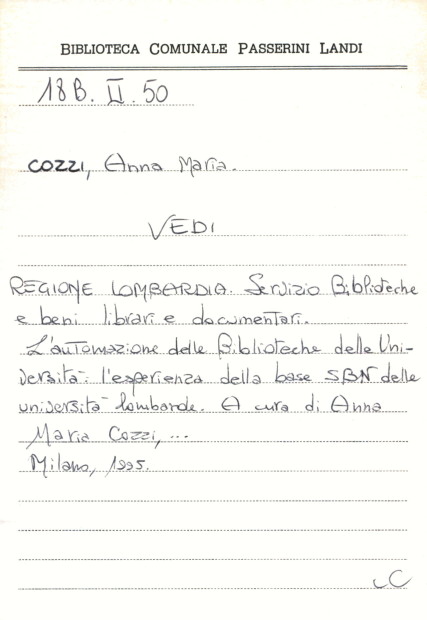 BIBLIOTECA COMUNALE PASSERINI LANDI
18B. II. 50
COZZI, Anna Maria.
VEDI
REGIONE LOMBARDIA. Servizio Biblioteche
e beni librari e documentari.
L'automazione delle Biblioteche delle Uni-
versità: l'esperienza della base SBN delle
università lombarde. A cura di Anna
Maria Cozzi, ...
Milano, 1995.